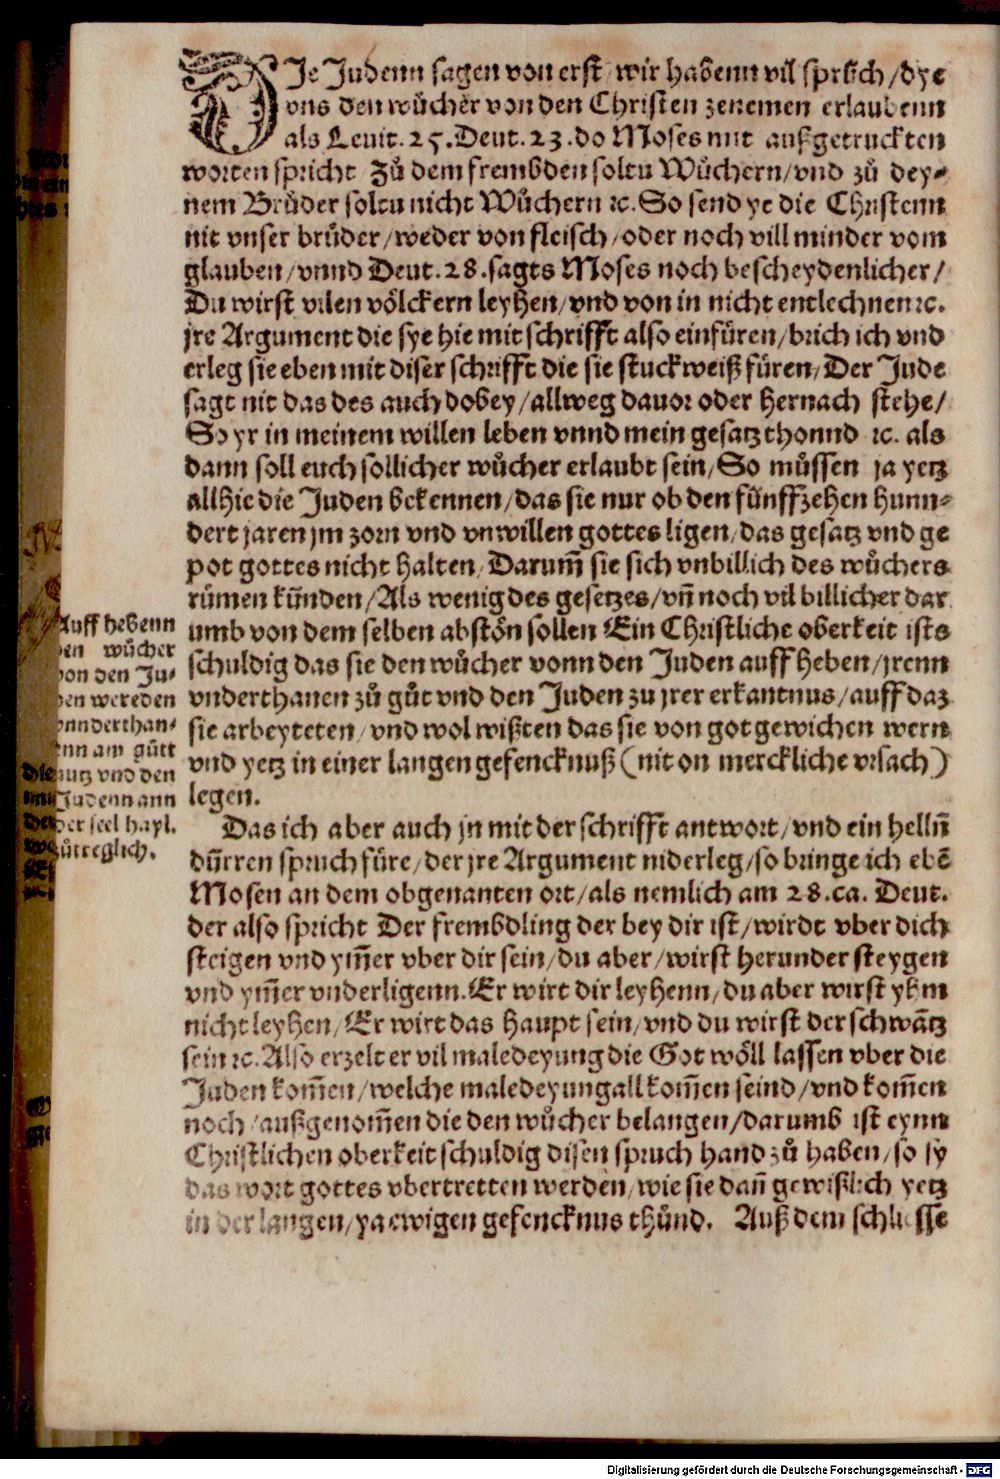 DIe Judenn sagen von erst/wir habenn vil sprüch/dye
vns den wůcher von den Christen zenemen erlaubenn
als Leuit. 25. Deut. 23. do Moses mit außgetruckten
worten spricht Zů dem frembden soltu Wůchern/vnd zů dey-
nem Brůder soltu nicht Wůchern ꝛc. So send ye die Christenn
nit vnser brůder/weder von fleisch/oder noch vill minder vom
glauben/vnnd Deut. 28. sagts Moses noch bescheydenlicher/
Du wirst vilen völckern leyhen/vnd von in nicht entlechnen ꝛc.
jre Argument die sye hie mit schrifft also einfüren/brich ich vnd
erleg sie eben mit diser schrifft die sie stuckweiß füren/Der Jude
sagt nit das des auch dobey/allweg dauor oder hernach stehe/
So yr in meinem willen leben vnnd mein gesatz thonnd ꝛc. als
dann soll euch sollicher wůcher erlaubt sein/So můssen ja yetz
allhie die Juden bekennen/das sie nur ob den fünffzehen hunn-
dert jaren jm zorn vnd vnwillen gottes ligen/das gesatz vnd ge
pot gottes nicht halten/Darum̄ sie sich vnbillich des wůchers
rümen künden/Als wenig des gesetzes/vn̄ noch vil billicher dar
umb von dem selben abstön sollen Ein Christliche oberkeit ists
schuldig das sie den wůcher vonn den Juden auff heben/jrenn
vnderthanen zů gůt vnd den Juden zu jrer erkantnus/auff daz
sie arbeyteten/vnd wol wißten das sie von got gewichen wern
vnd yetz in einer langen gefencknuß (nit on merckliche vrsach)
legen.
Auff hebenn
den wůcher
von den Ju-
den wereden
vnnderthan-
enn am gůtt
nutz vnd den
Judenn ann
der seel hayl.
zůtreglich.
Das ich aber auch jn mit der schrifft antwort/vnd ein helln̄
dürren spruch füre/der jre Argument niderleg/so bringe ich ebē
Mosen an dem obgenanten ort/als nemlich am 28. ca. Deut.
der also spricht Der frembdling der bey dir ist/wirdt vber dich
steigen vnd ym̄er vber dir sein/du aber/wirst herunder steygen
vnd ym̄er vnderligenn. Er wirt dir leyhenn/du aber wirst yhm
nicht leyhen/Er wirt das haupt sein/vnd du wirst der schwātz
sein ꝛc. Also erzelt er vil maledeyung die Got wöll lassen vber die
Juden kom̄en/welche maledeyung all kom̄en seind/vnd kom̄en
noch/außgenom̄en die den wůcher belangen/darumb ist eynn
Christlichen oberkeit schuldig disen spruch hand zů haben/so sy
das wort gottes vbertretten werden/wie sie dan̄ gewißlich yetz
in der langen/ya ewigen gefencknus thůnd. Auß dem schliesse
Digitalisierung gefördert durch die Deutsche Forschungsgemeinschaft - DFG